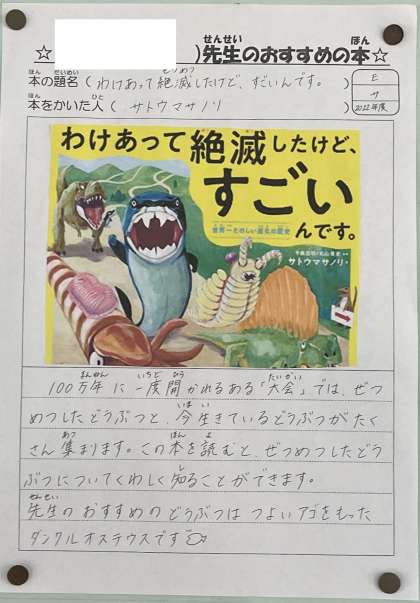 ☆ ) 先生のおすすめの本☆
本の題名 ( わけあって絶滅したけど、すごいんです。 ) E
本をかいた人 ( サトウマサノリ ) サ
2022年度
わけあって絶滅したけど、
すごい
んです。
世界一たのしい進化の歴史
サトウマサノリ
100万年に一度開かれるある「大会」では、ぜつ
めつしたどうぶつと、今生きているどうぶつがたく
さん集まります。この本を読むと、ぜつめつしたどう
ぶつについてくわしく知ることができます。
先生のおすすめのどうぶつはつよいアゴをもった
ダンクルオステウスです